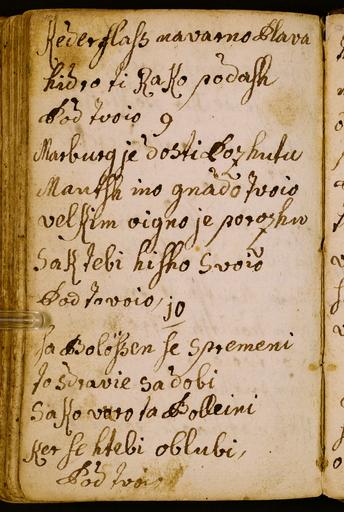 Keder flass na varno Glava
hidro ti Kako podash
Pod tvoio 9
Marburg je dosti Coshutu
Mantsh ino gnado tvoio
velkim oigno je poroshu
Sak tebi hisho Svoio
Pod tovoio,
10
Ja Bolössen se spremeni
to sdravie sadobi
Sako varo ta Bolleini
ker se k tebi oblubi,
Pod tvoi